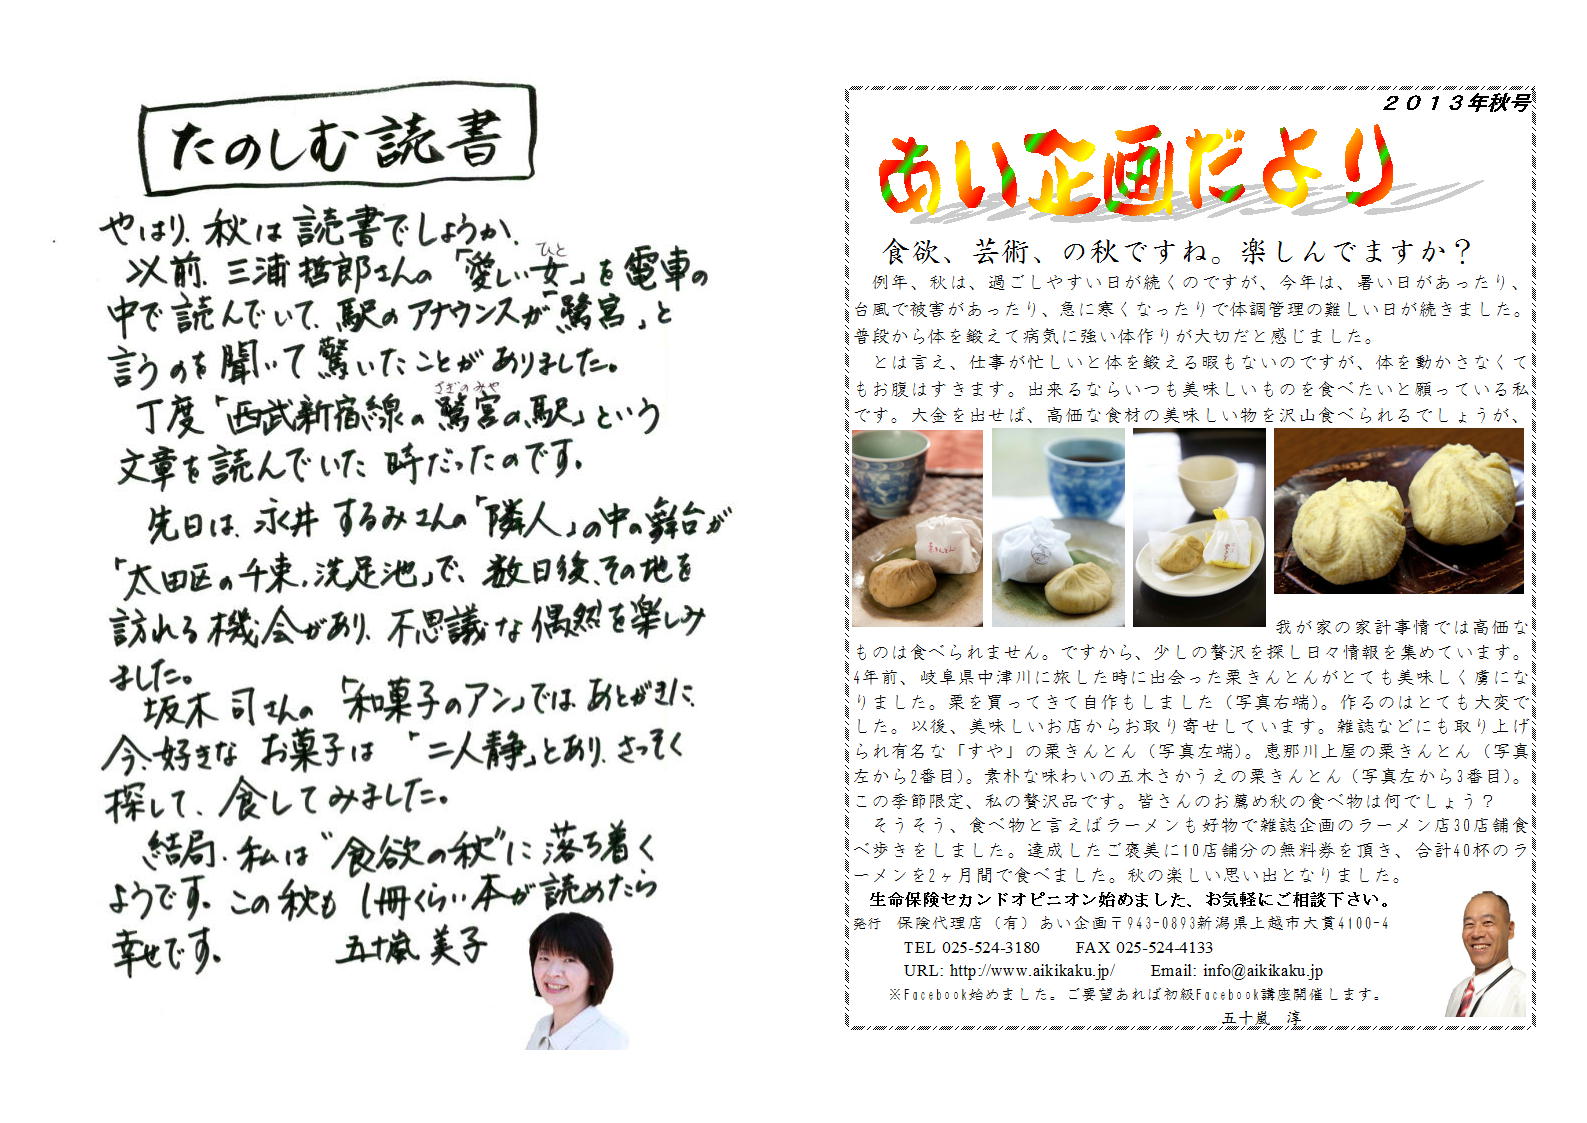 たのしむ読書
やはり、秋は読書でしょうか、
以前、三浦哲郎さんの「愛しい女」を電車の
ひと
中で読んでいて、駅のアナウンスが「鷺宮」と
言うのを聞いて驚いたことがありました。
さぎのみや
丁度「西武新宿線の鷺宮の駅」という
文章を読んでいた時だったのです。
先日は、永井するみさんの「隣人」の中の舞台が
「大田区の千束,洗足池」で、数日後、その地を
訪れる機会があり、不思議な偶然を楽しみ
ました。
坂木司さんの「和菓子のアン」では、あとがきに、
今、好きなお菓子は「二人静」とあり、さっそく
探して、食してみました。
結局、私は"食欲の秋"に落ち着く
ようです。この秋も1冊くらい本が読めたら
幸せです。 五十嵐 美子
２０１３年秋号
あい企画だより
食欲、芸術、の秋ですね。楽しんでますか？
例年、秋は、過ごしやすい日が続くのですが、今年は、暑い日があったり、
台風で被害があったり、急に寒くなったりで体調管理の難しい日が続きました。
普段から体を鍛えて病気に強い体作りが大切だと感じました。
とは言え、仕事が忙しいと体を鍛える暇もないのですが、体を動かさなくて
もお腹はすきます。出来るならいつも美味しいものを食べたいと願っている私
です。大金を出せば、高価な食材の美味しい物を沢山食べられるでしょうが、
我が家の家計事情では高価な
ものは食べられません。ですから、少しの贅沢を探し日々情報を集めています。
4年前、岐阜県中津川に旅した時に出会った栗きんとんがとても美味しく虜にな
りました。栗を買ってきて自作もしました（写真右端）。作るのはとても大変で
した。以後、美味しいお店からお取り寄せしています。雑誌などにも取り上げ
られ有名な「すや」の栗きんとん（写真左端）。恵那川上屋の栗きんとん（写真
左から2番目）。素朴な味わいの五木さかうえの栗きんとん（写真左から3番目）。
この季節限定、私の贅沢品です。皆さんのお薦め秋の食べ物は何でしょう？
そうそう、食べ物と言えばラーメンも好物で雑誌企画のラーメン店30店舗食
べ歩きをしました。達成したご褒美に10店舗分の無料券を頂き、合計40杯のラ
ーメンを2ヶ月間で食べました。秋の楽しい思い出となりました。
生命保険セカンドオピニオン始めました、お気軽にご相談下さい。
発行 保険代理店（有）あい企画〒943-0893新潟県上越市大貫4100-4
TEL 025-524-3180 FAX 025-524-4133
URL: http://www.aikikaku.jp/ Email: info@aikikaku.jp
※Facebook始めました。ご要望あれば初級Facebook講座開催します。
五十嵐 淳